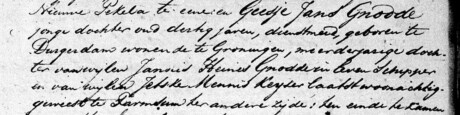 Nieuwe Pekela te eenen Geesje Jans Gnodde
jonge dochter oud dertig jaren, dienstmeid, geboren te
Durgerdam wonende te Groningen, meerderjarige doch-
ter van wylen Jannes Heines Gnodde in leven Schipper
en van wylen Jetske Mennes Keyser laatst woonachtig
geweest te Farmsum ter andere zijde; ten einde te zamen